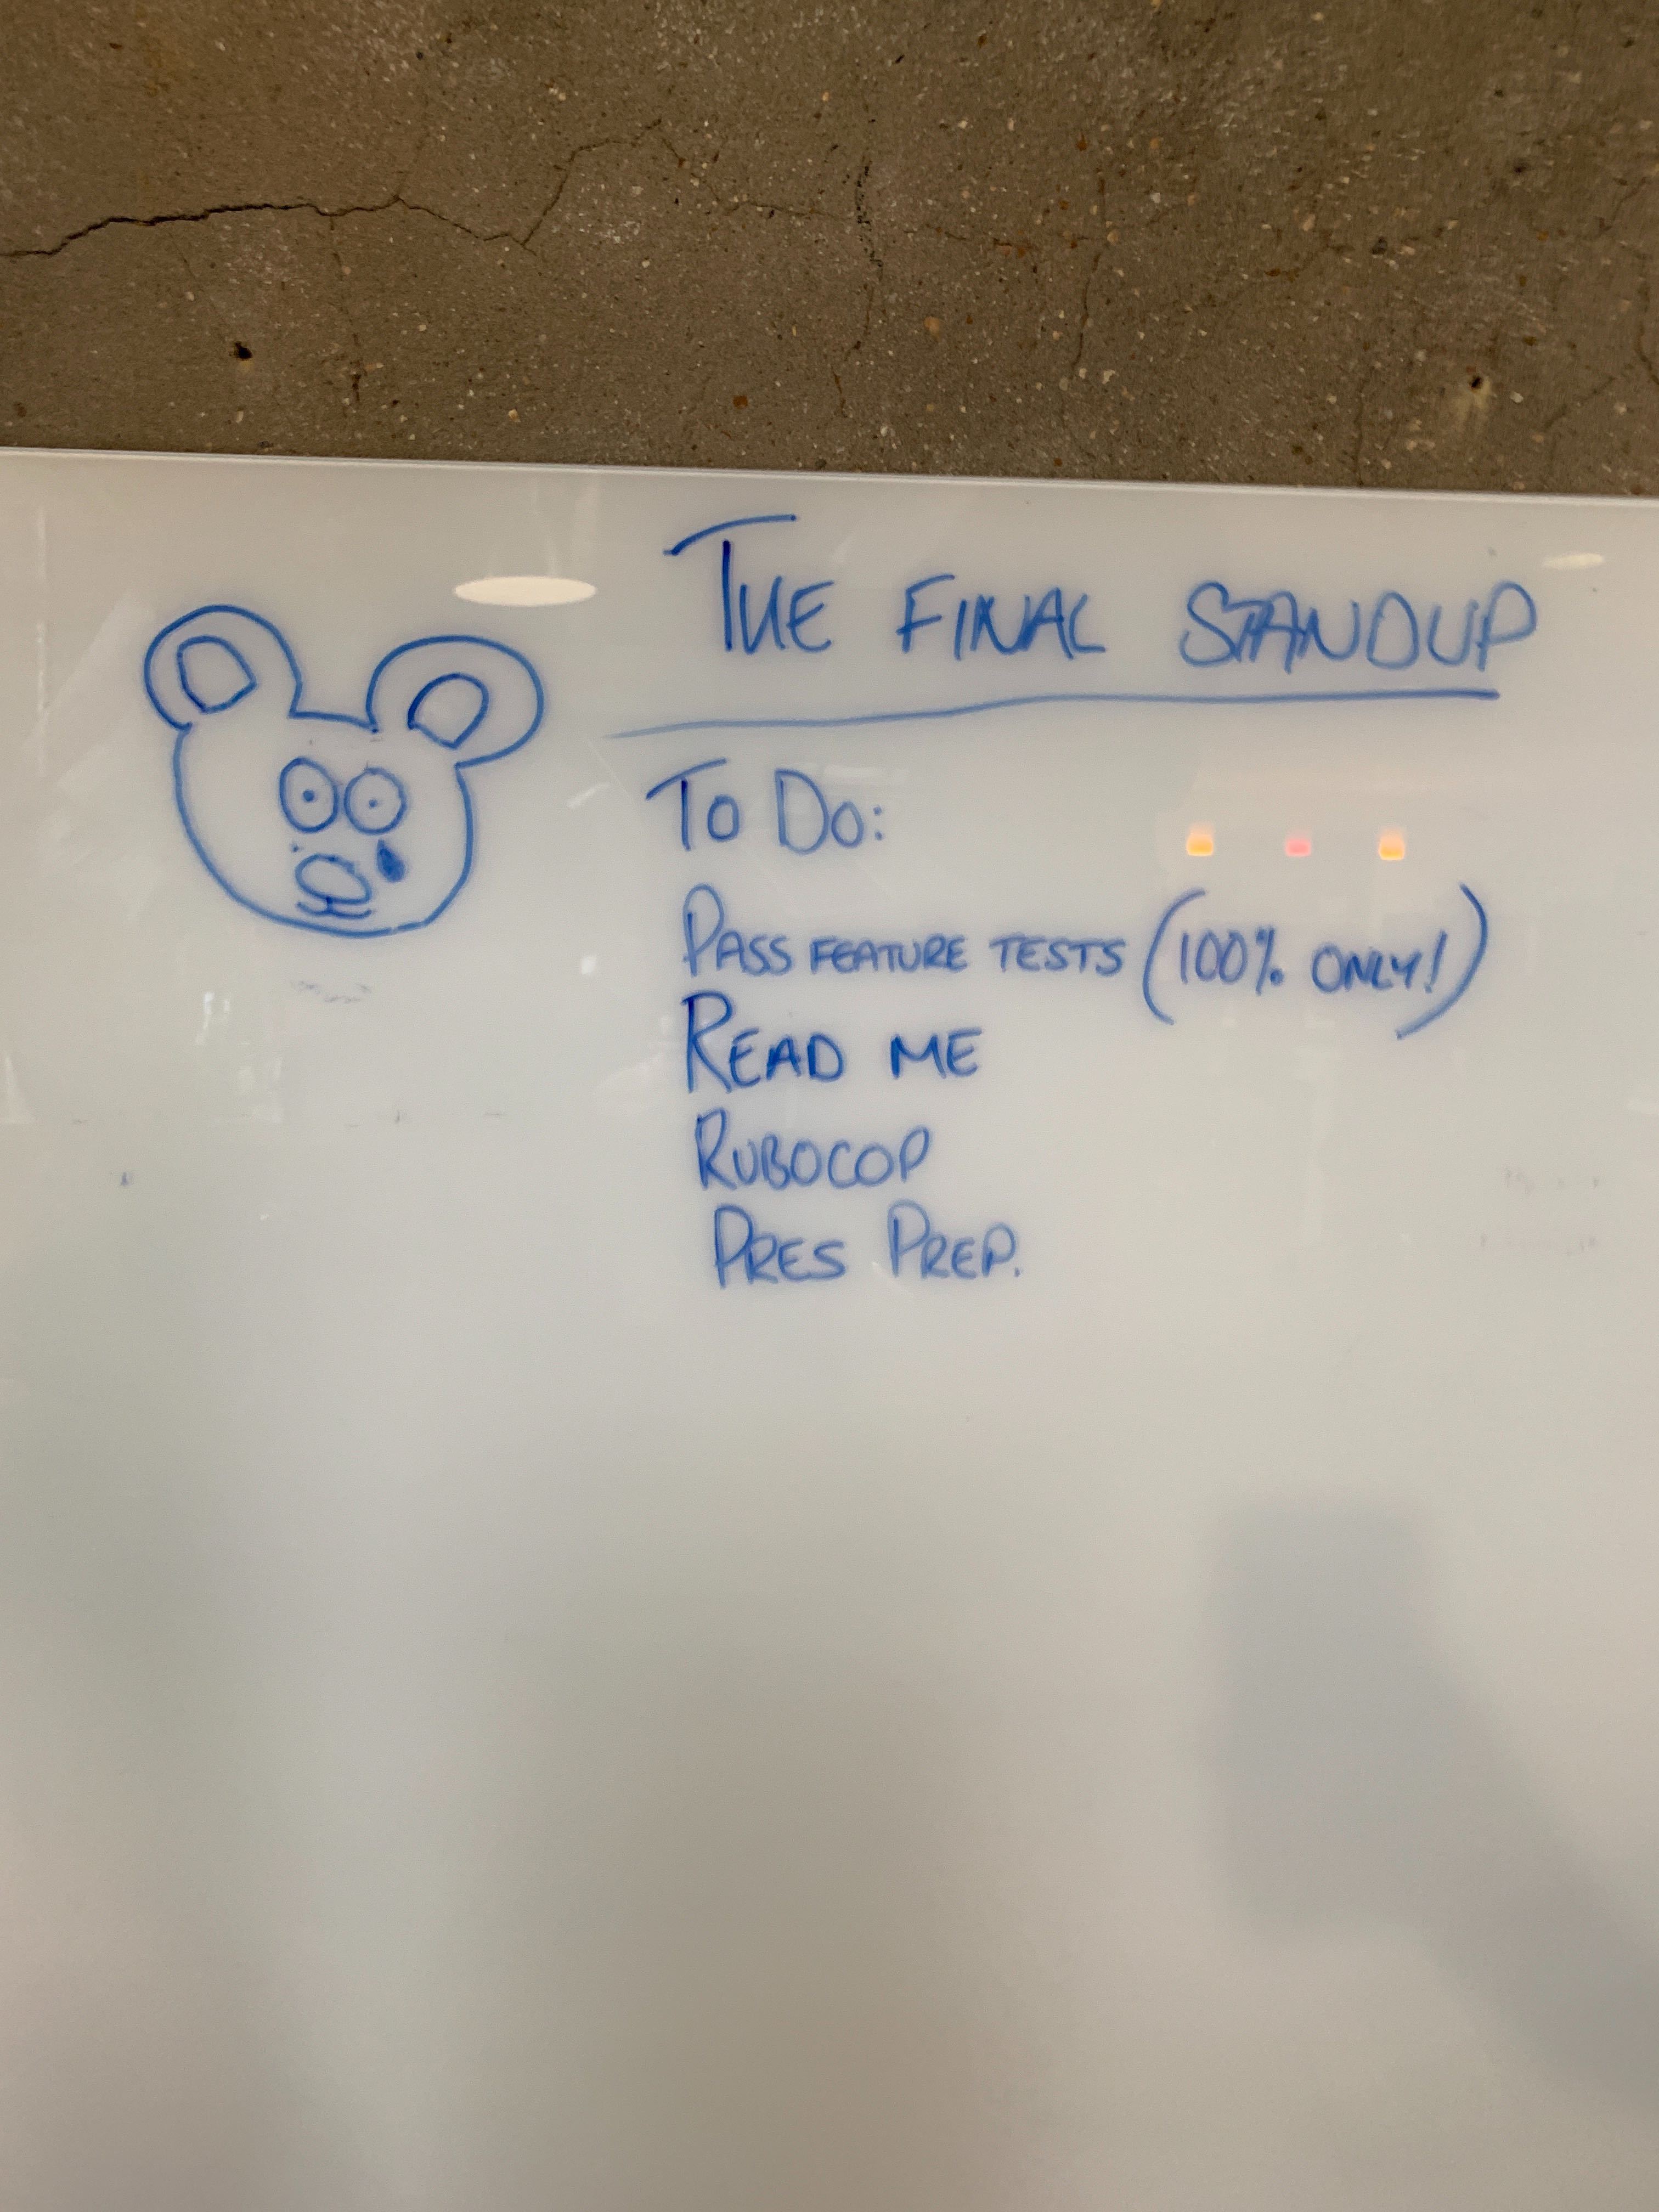 THE FINAL STANDUP
TO DO:
PASS FEATURE TESTS (100% ONLY!)
READ ME
RUBOCOP
PRES PREP.